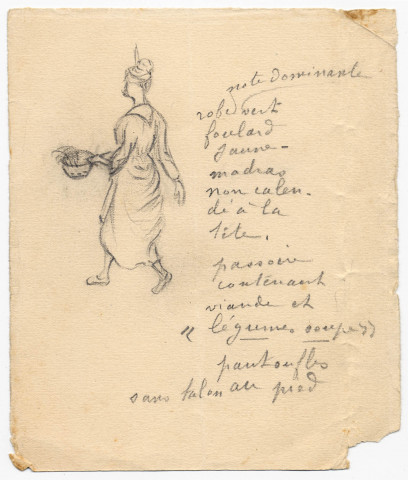 note dominante
robe vert
foulard
jaune -
madras
non calen-
dé à la
tête.
passoire
contenant
viande et
"légumes soupe"
pantoufles
sans talon au pied